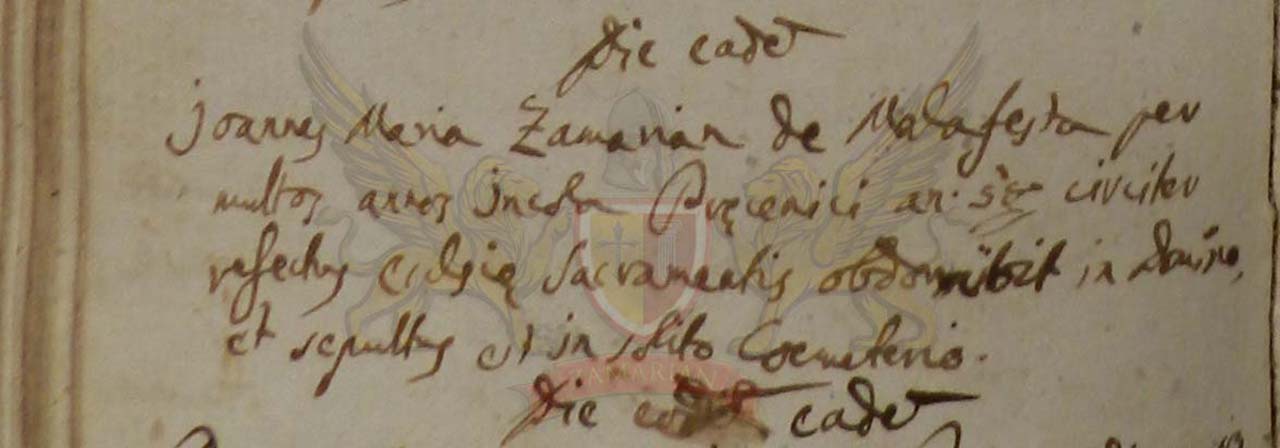 Die eade
Joannes Maria Zamarian de Malafesta per
multos annos incola Pręcenici an: circiter
refectus eclesię Sacramentis obdormivit in Domino,
et sepultus est in solito Coemeterio.
Die eade
ZAMARIAN